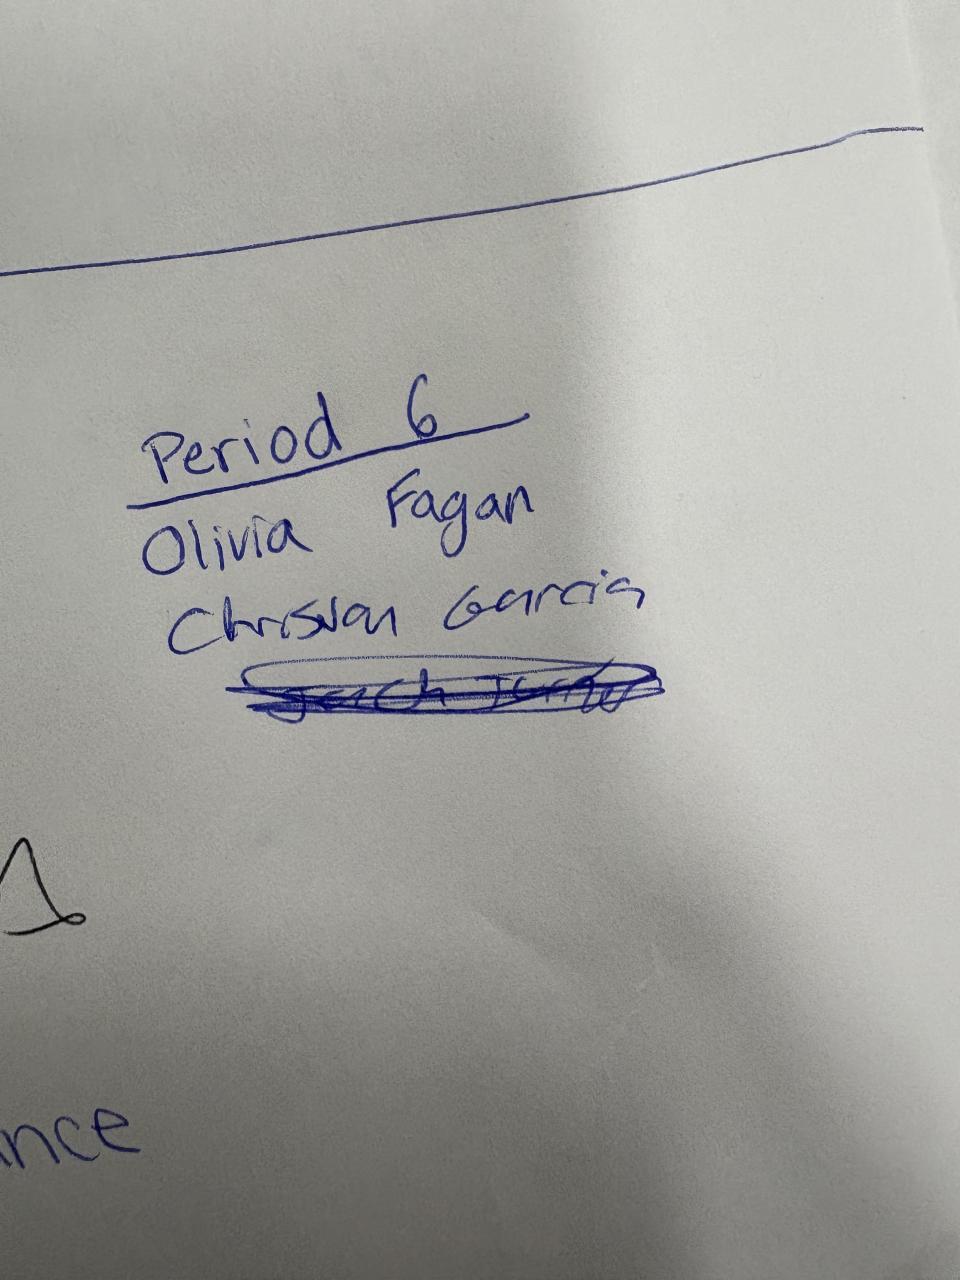 Period 6
Olivia Fagan
Christian Garcia
ance